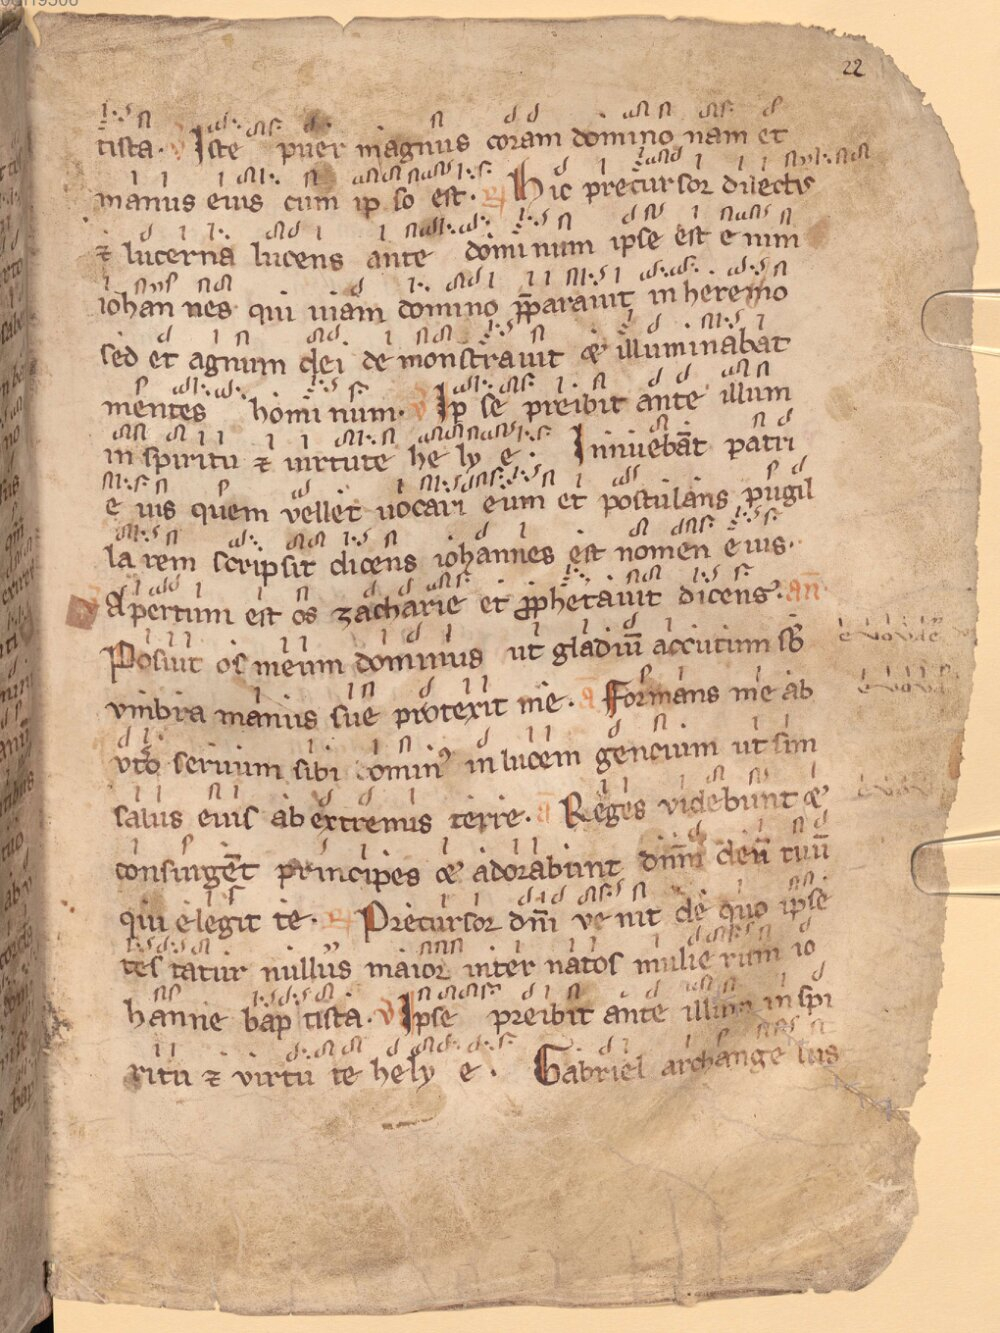 22
tista. V Iste puer magnus coram domino nam et
manus eius cum ip so est. R Hic precursor dilectis
⁊ lucerna lucens ante dominum ipse est enim
iohan nes qui uiam domino p̄parauit in heremo
sed et agnum dei de monstrauit & illuminabat
mentes hominum. V Ip se preibit ante illum
in spiritu ⁊ uirtute he ly e. Innuebāt patri
e ius quem vellet uocari eum et postulans pugil
larem scripsit dicens iohannes est nomen eius.
Apertum est os zacharie et prophetauit dicens. an̄
Posuit os meum dominus ut gladiū accutum sb̄
vmbra manus sue protexit me. ā Formans me ab
vt̄o seruum sibi dominꝰ in lucem gencium ut sim
salus eius ab extremus terre. ā Reges videbunt &
consurgēt principes & adorabunt dn̄m deū tuū
qui elegit te. R Precursor dn̄i ve nit de quo ipse
tes tatur nullus maior inter natos mulie rum io
hanne bap tista. V Ipse preibit ante illum in spi
ritu ⁊ virtu te hely e. Gabriel archange lus